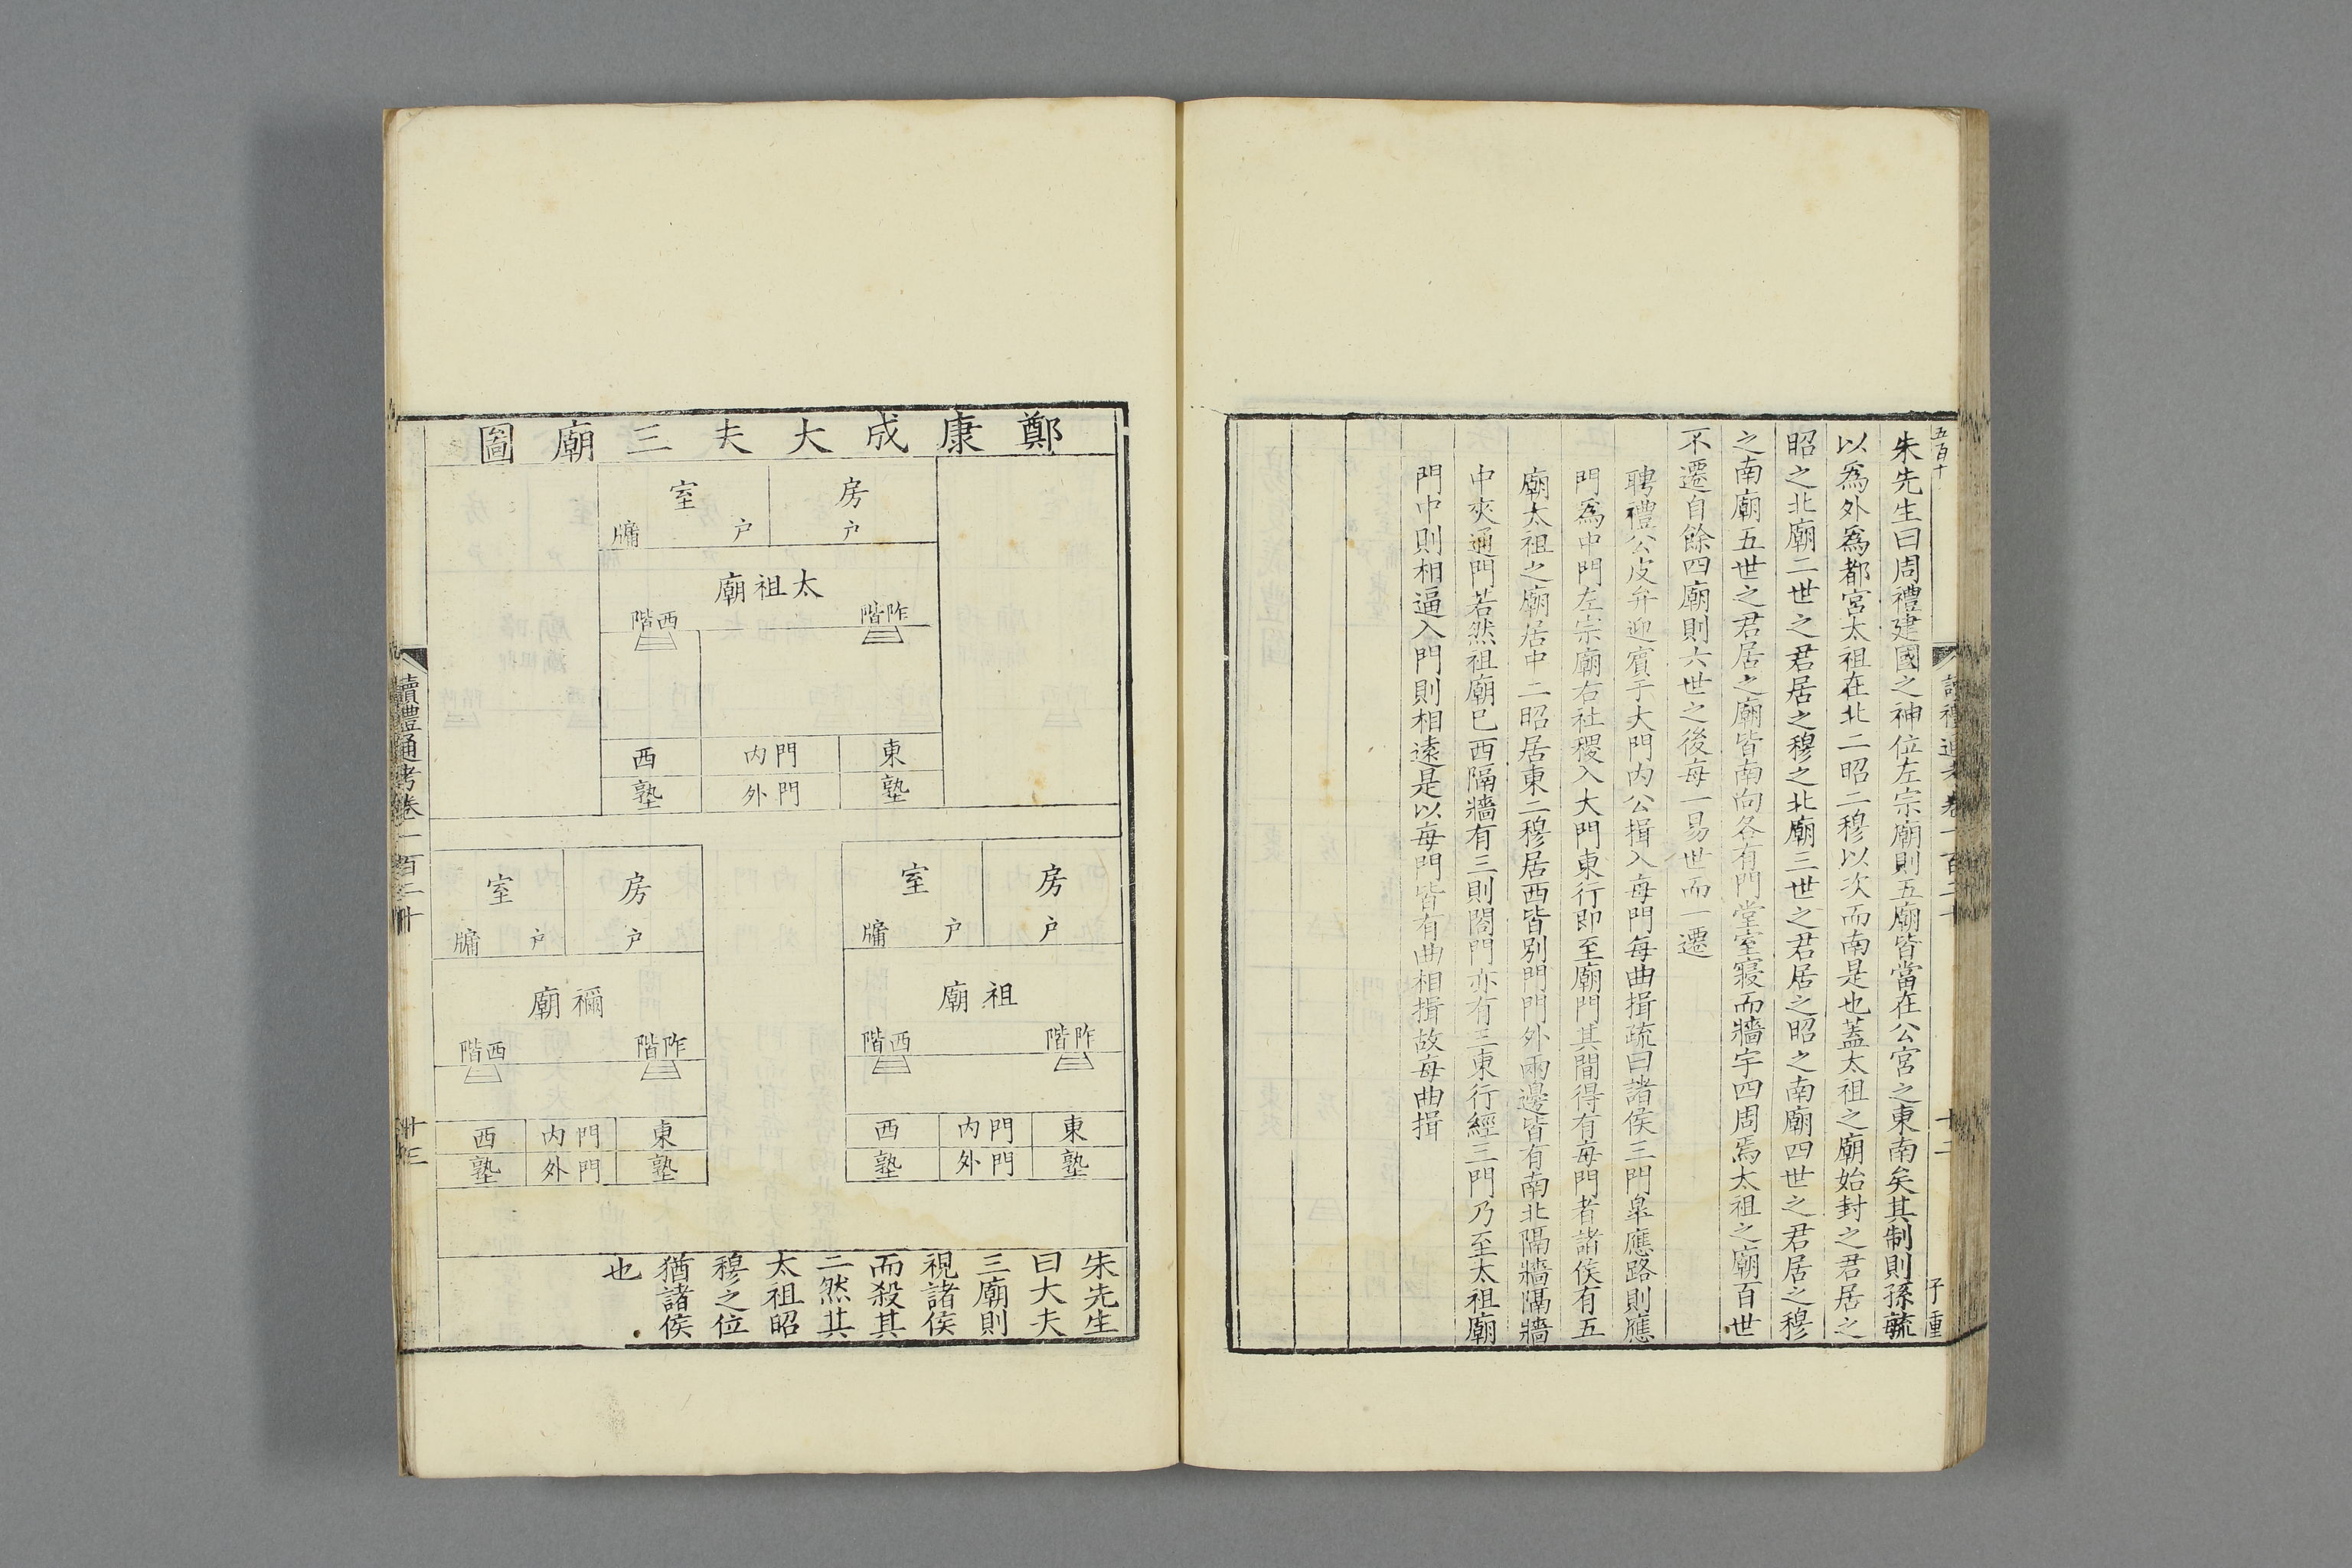 五百十
讀禮通考卷一百二十
十二
子重
朱先生曰周禮建國之神位左宗廟則五廟皆當在公宮之東南矣其制則孫毓
以爲外爲都宮太祖在北二昭二穆以次而南是也蓋太祖之廟始封之君居之
昭之北廟二世之君居之穆之北廟三世之君居之昭之南廟四世之君居之穆
之南廟五世之君居之廟皆南向各有門堂室寢而牆宇四周焉太祖之廟百世
不遷自餘四廟則六世之後每一易世而一遷
聘禮公皮弁迎賓于大門內公揖入每門每曲揖疏曰諸侯三門皋應路則應
門爲中門左宗廟右社稷入大門東行即至廟門其間得有每門者諸侯有五
廟太祖之廟居中二昭居東二穆居西皆別門門外兩邊皆有南北隔牆隔牆
中夾通門若然祖廟已西隔牆有三則閤門亦有三東行經三門乃至太祖廟
門中則相逼入門則相遠是以每門皆有曲相揖故每曲揖
鄭康成大夫三廟圖
房
戶
室
戶
牖
太祖廟
阼階
西階
東塾
門內
門外
西塾
房
戶
室
戶
牖
祖廟
阼階
西階
東塾
門內
門外
西塾
房
戶
室
戶
牖
禰廟
阼階
西階
東塾
門內
門外
西塾
朱先生
曰大夫
三廟則
視諸侯
而殺其
二然其
太祖昭
穆之位
猶諸侯
也
讀禮通考卷一百二十
十三